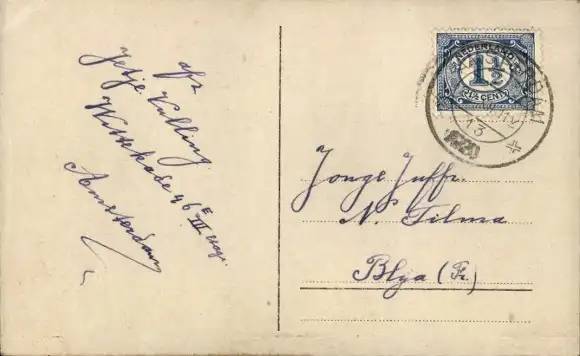 afz
Jetje Kulling
Wittekade 46 E III hoog.
Amsterdam
NEDERLAND
1½
1½ CENT
DAM
13
Jonge Juffr.
N. Tilma
Blya (Fr.)